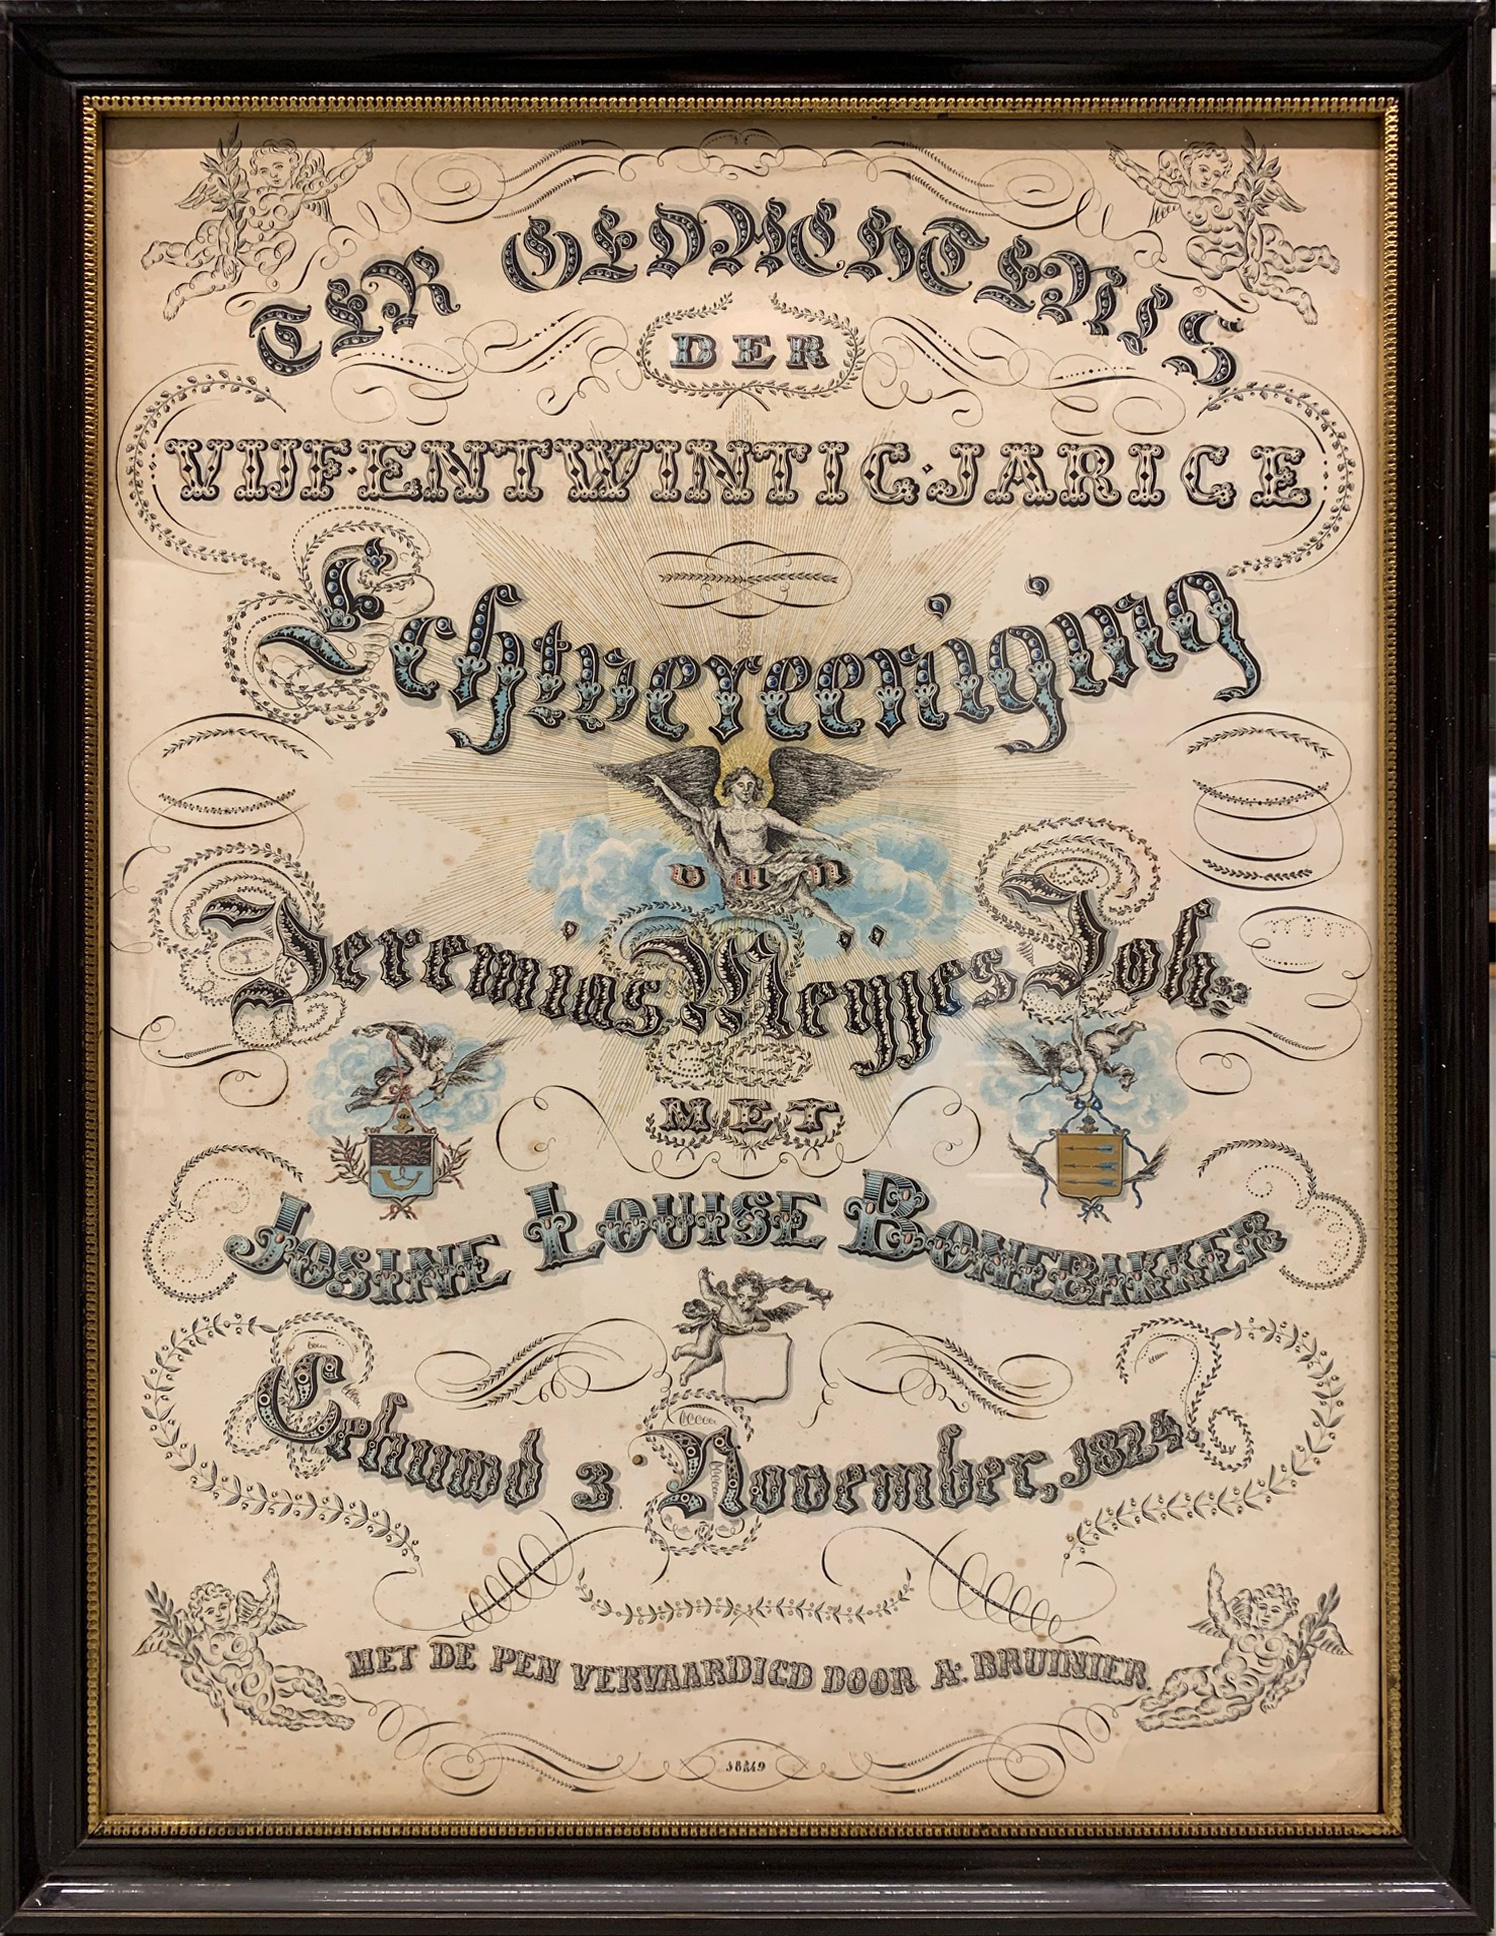 TER GEDACHTENIS
DER
VIJF·ENTWINTIG·JARIGE
Echtvereeniging
van
Jeremias Meyjes Joh.
MET
JOSINE LOUISE BONEBAKKER
Gehuwd 3 November, 1824.
MET DE PEN VERVAARDIGD DOOR A: BRUINIER.
1849